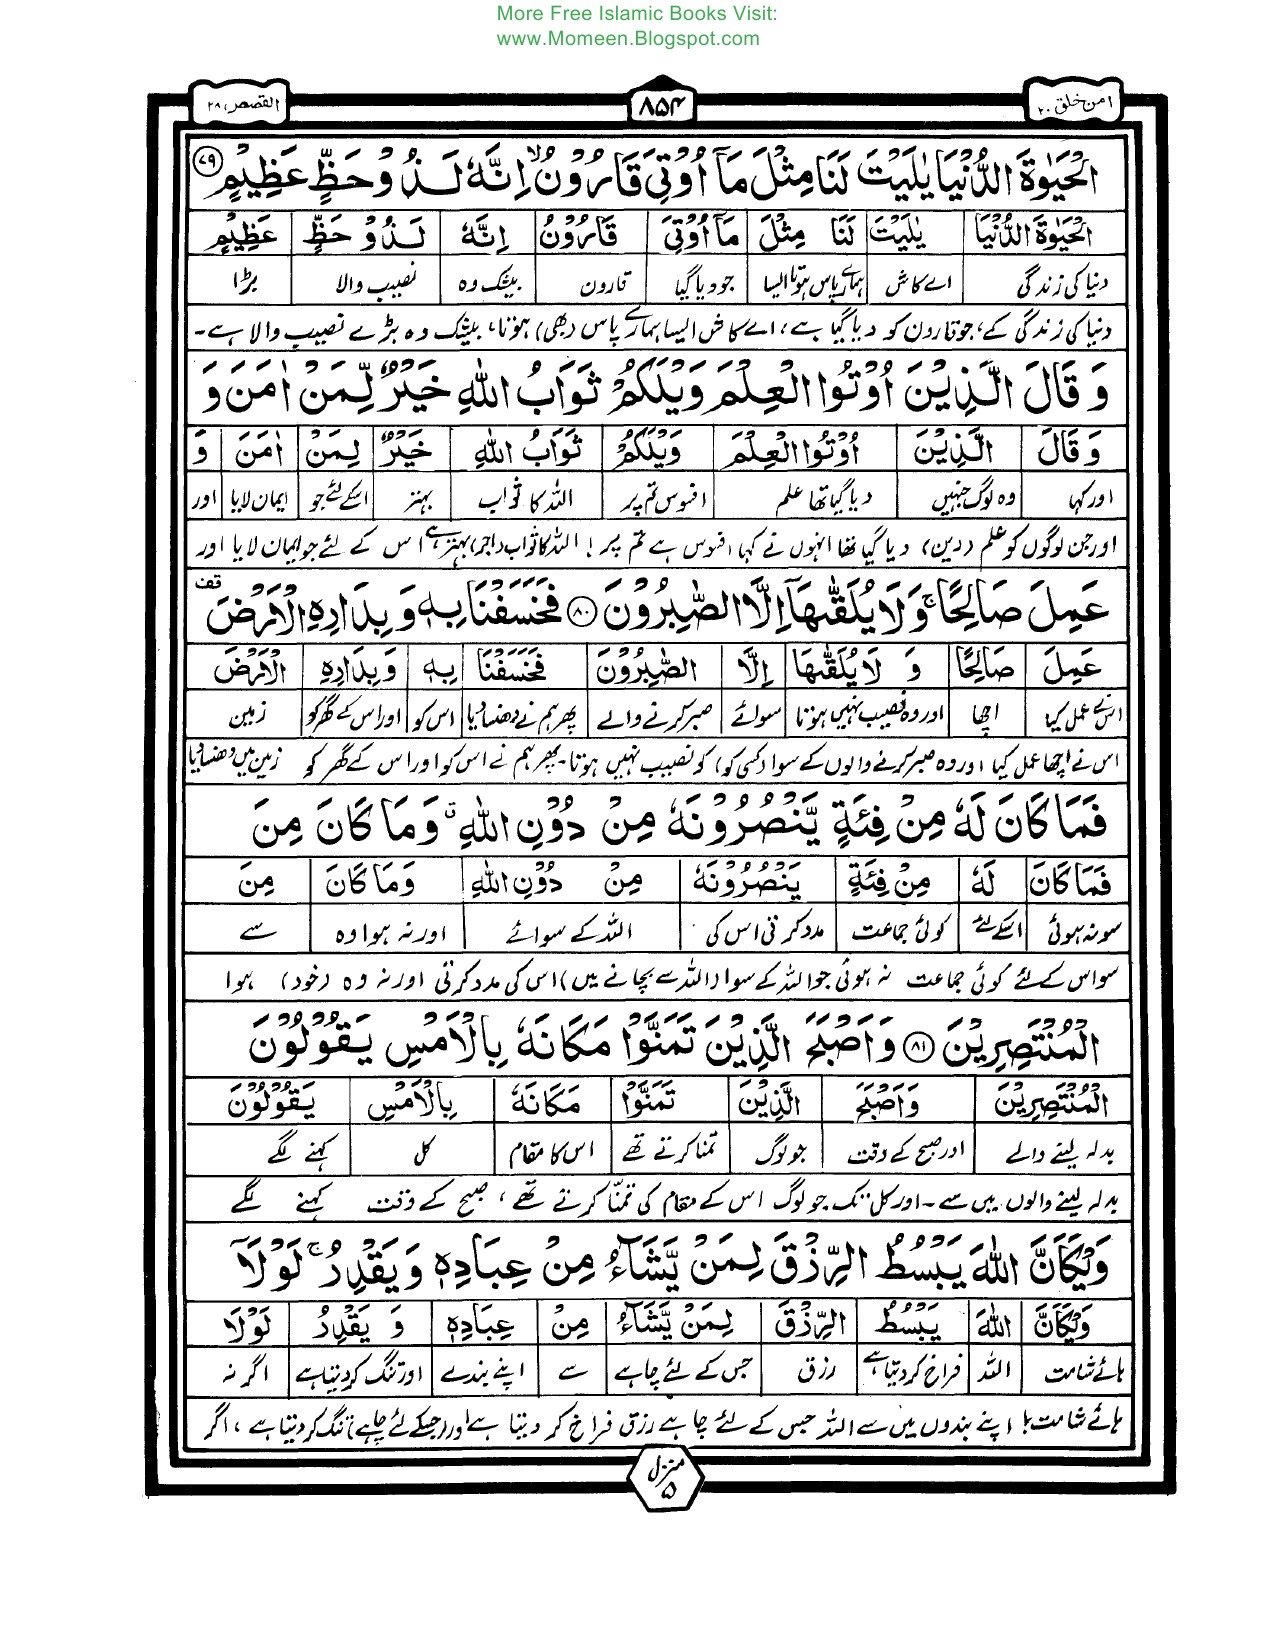 More Free Islamic Books Visit:
www.Momeen.Blogspot.com
امن خلق ۲۰ ۸۵۴ القصص ۲۸
الْحَيٰوةَ الدُّنْيَا يٰلَيْتَ لَنَا مِثْلَ مَآ اُوْتِيَ قَارُوْنُ ۙ اِنَّهٗ لَذُوْ حَظٍّ عَظِيْمٍ ۷۹
الْحَيٰوةَ الدُّنْيَا يٰلَيْتَ لَنَا مِثْلَ مَآ اُوْتِيَ قَارُوْنُ اِنَّهٗ لَذُوْ حَظٍّ عَظِيْمٍ
دنیا کی زندگی اے کاش ہمارے پاس ہوتا ایسا جو دیا گیا قارون بیشک وہ نصیب والا بڑا
دنیا کی زندگی کے، جو قارون کو دیا گیا ہے، اے کاش ایسا ہمارے پاس (بھی) ہوتا، بیشک وہ بڑے نصیب والا ہے۔
وَقَالَ الَّذِيْنَ اُوْتُوا الْعِلْمَ وَيْلَكُمْ ثَوَابُ اللّٰهِ خَيْرٌ لِّمَنْ اٰمَنَ وَ
وَقَالَ الَّذِيْنَ اُوْتُوا الْعِلْمَ وَيْلَكُمْ ثَوَابُ اللّٰهِ خَيْرٌ لِمَنْ اٰمَنَ وَ
اور کہا وہ لوگ جنہیں دیا گیا تھا علم افسوس تم پر اللہ کا ثواب بہتر اسکے لئے جو ایمان لایا اور
اور جن لوگوں کو علم (دین) دیا گیا تھا انہوں نے کہا افسوس ہے تم پر! اللہ کا ثواب (اجر) بہتر ہے اس کے لئے جو ایمان لایا اور
عَمِلَ صَالِحًا ۚ وَلَا يُلَقّٰىهَآ اِلَّا الصّٰبِرُوْنَ ۸۰ فَخَسَفْنَا بِهٖ وَبِدَارِهِ الْاَرْضَ قف
عَمِلَ صَالِحًا وَ لَا يُلَقّٰىهَا اِلَّا الصّٰبِرُوْنَ فَخَسَفْنَا بِهٖ وَبِدَارِهِ الْاَرْضَ
اس نے عمل کیا اچھا اور وہ نصیب نہیں ہوتا سوائے صبر کرنے والے پھر ہم نے دھنسا دیا اس کو اور اس کے گھر کو زمین
اس نے اچھا عمل کیا اور وہ صبر کرنے والوں کے سوا (کسی کو) نصیب نہیں ہوتا۔ پھر ہم نے اس کو اور اس کے گھر کو زمین میں دھنسا دیا
فَمَا كَانَ لَهٗ مِنْ فِئَةٍ يَّنْصُرُوْنَهٗ مِنْ دُوْنِ اللّٰهِ ۗ وَمَا كَانَ مِنَ
فَمَا كَانَ لَهٗ مِنْ فِئَةٍ يَنْصُرُوْنَهٗ مِنْ دُوْنِ اللّٰهِ وَمَا كَانَ مِنَ
سو نہ ہوئی اسکے لئے کوئی جماعت مدد کرتی اس کی اللہ کے سوائے اور نہ ہوا وہ سے
سو اس کے لئے کوئی جماعت نہ ہوئی جو اللہ کے سوا (اللہ سے بچانے میں) اس کی مدد کرتی اور نہ وہ (خود) ہوا
الْمُنْتَصِرِيْنَ ۸۱ وَاَصْبَحَ الَّذِيْنَ تَمَنَّوْا مَكَانَهٗ بِالْاَمْسِ يَقُوْلُوْنَ
الْمُنْتَصِرِيْنَ وَاَصْبَحَ الَّذِيْنَ تَمَنَّوْا مَكَانَهٗ بِالْاَمْسِ يَقُوْلُوْنَ
بدلہ لینے والے اور صبح کے وقت جو لوگ تمنا کرتے تھے اس کا مقام کل کہنے لگے
بدلہ لینے والوں میں سے۔ اور کل تک جو لوگ اس کے مقام کی تمنّا کرتے تھے، صبح کے وقت کہنے لگے
وَيْكَاَنَّ اللّٰهَ يَبْسُطُ الرِّزْقَ لِمَنْ يَّشَآءُ مِنْ عِبَادِهٖ وَيَقْدِرُ ۚ لَوْلَآ
وَيْكَاَنَّ اللّٰهَ يَبْسُطُ الرِّزْقَ لِمَنْ يَّشَآءُ مِنْ عِبَادِهٖ وَ يَقْدِرُ لَوْلَا
ہائے شامت اللہ فراخ کر دیتا ہے رزق جس کے لئے چاہے سے اپنے بندے اور تنگ کر دیتا ہے اگر نہ
ہائے شامت! اپنے بندوں میں سے اللہ جس کے لئے چاہے رزق فراخ کر دیتا ہے اور (جسکے لئے چاہے) تنگ کر دیتا ہے، اگر
منزل ۵